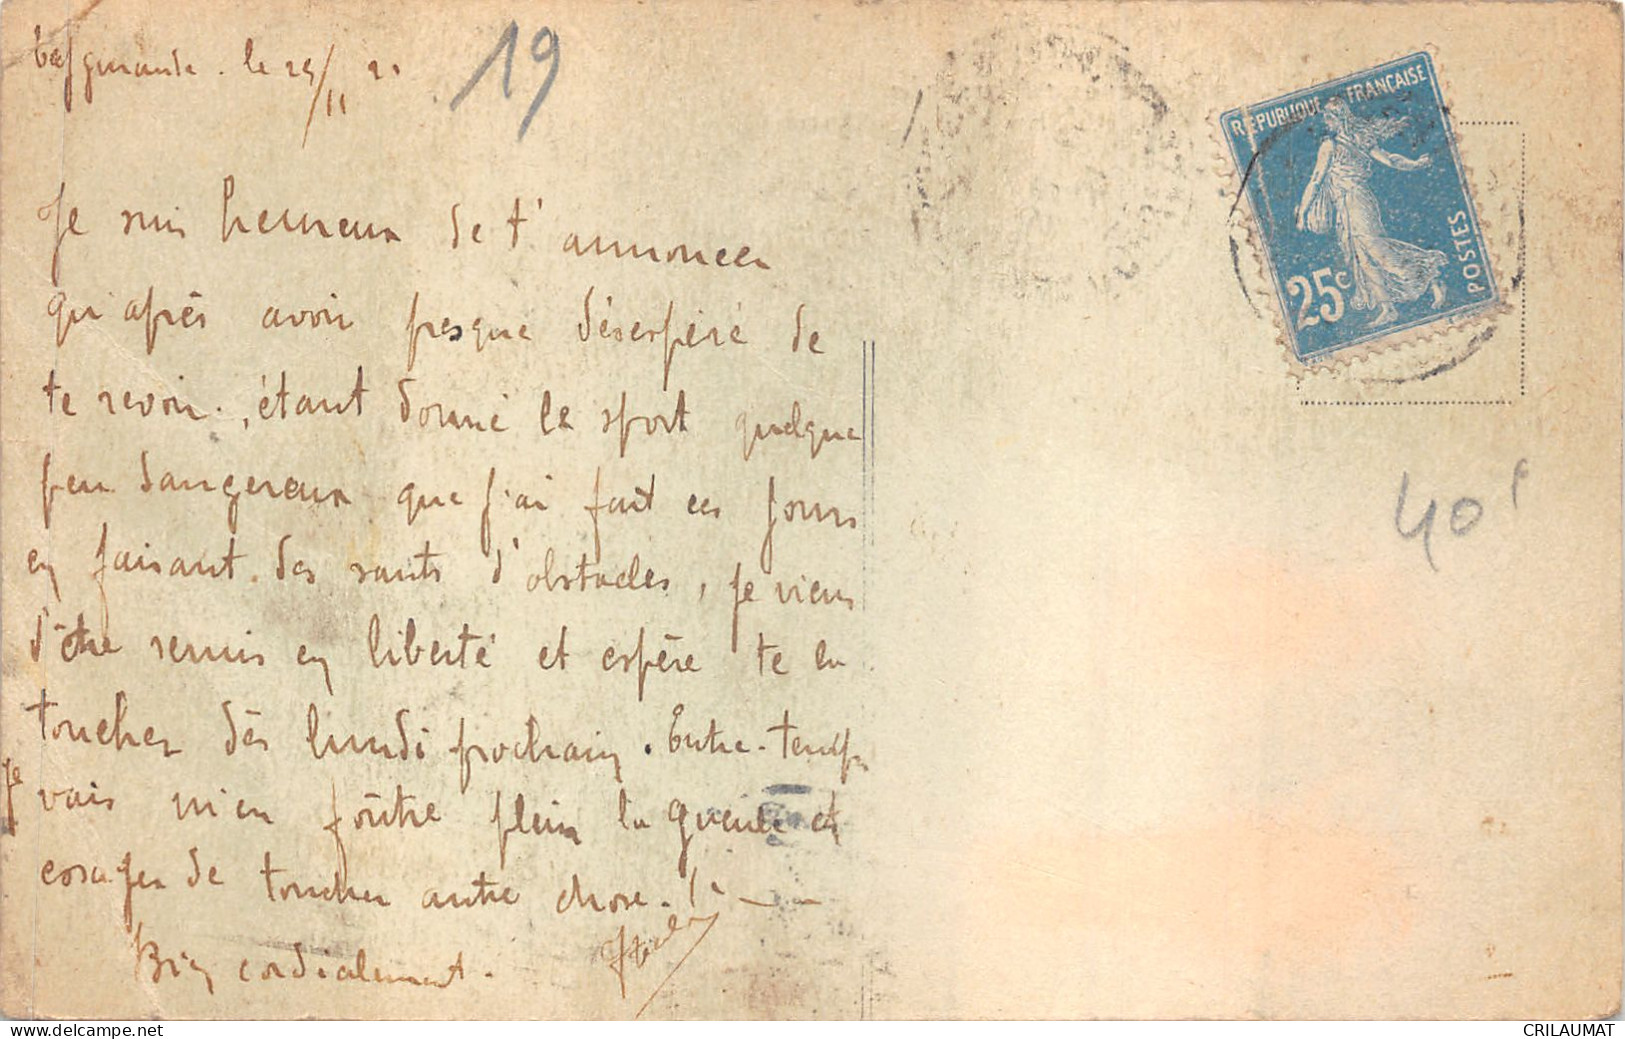 le 29/11 21
19
Je suis heureux de t'annoncer
qu'après avoir presque désespéré de
te revoir, étant donné le sport quelque
peu dangereux que j'ai fait ces jours
en faisant des sauts d'obstacles, je viens
d'être remis en liberté et espère te la
toucher dès lundi prochain. Entre-temps
je vais m'en foûtre plein la gueule et
essayer de toucher autre chose.!
Bien cordialement.
REPUBLIQUE FRANÇAISE
25c
POSTES
40f
CRILAUMAT